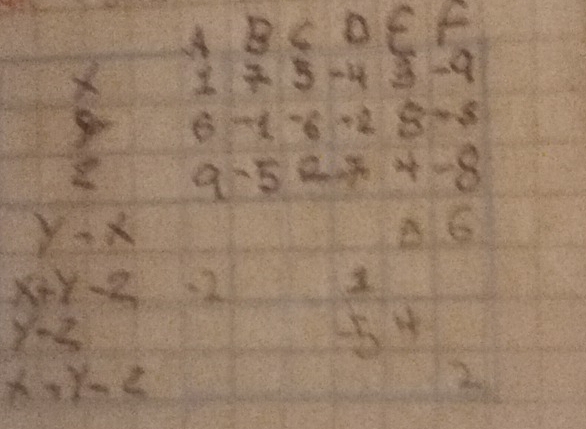 A B C D E F
X 1 7 5 -4 3 -9
y 6 -1 -6 -2 5
z 9 -5 -7 4 -8
Y - X 6
X+Y-Z -2 1
Y-Z -5 4
X + Y - Z 2